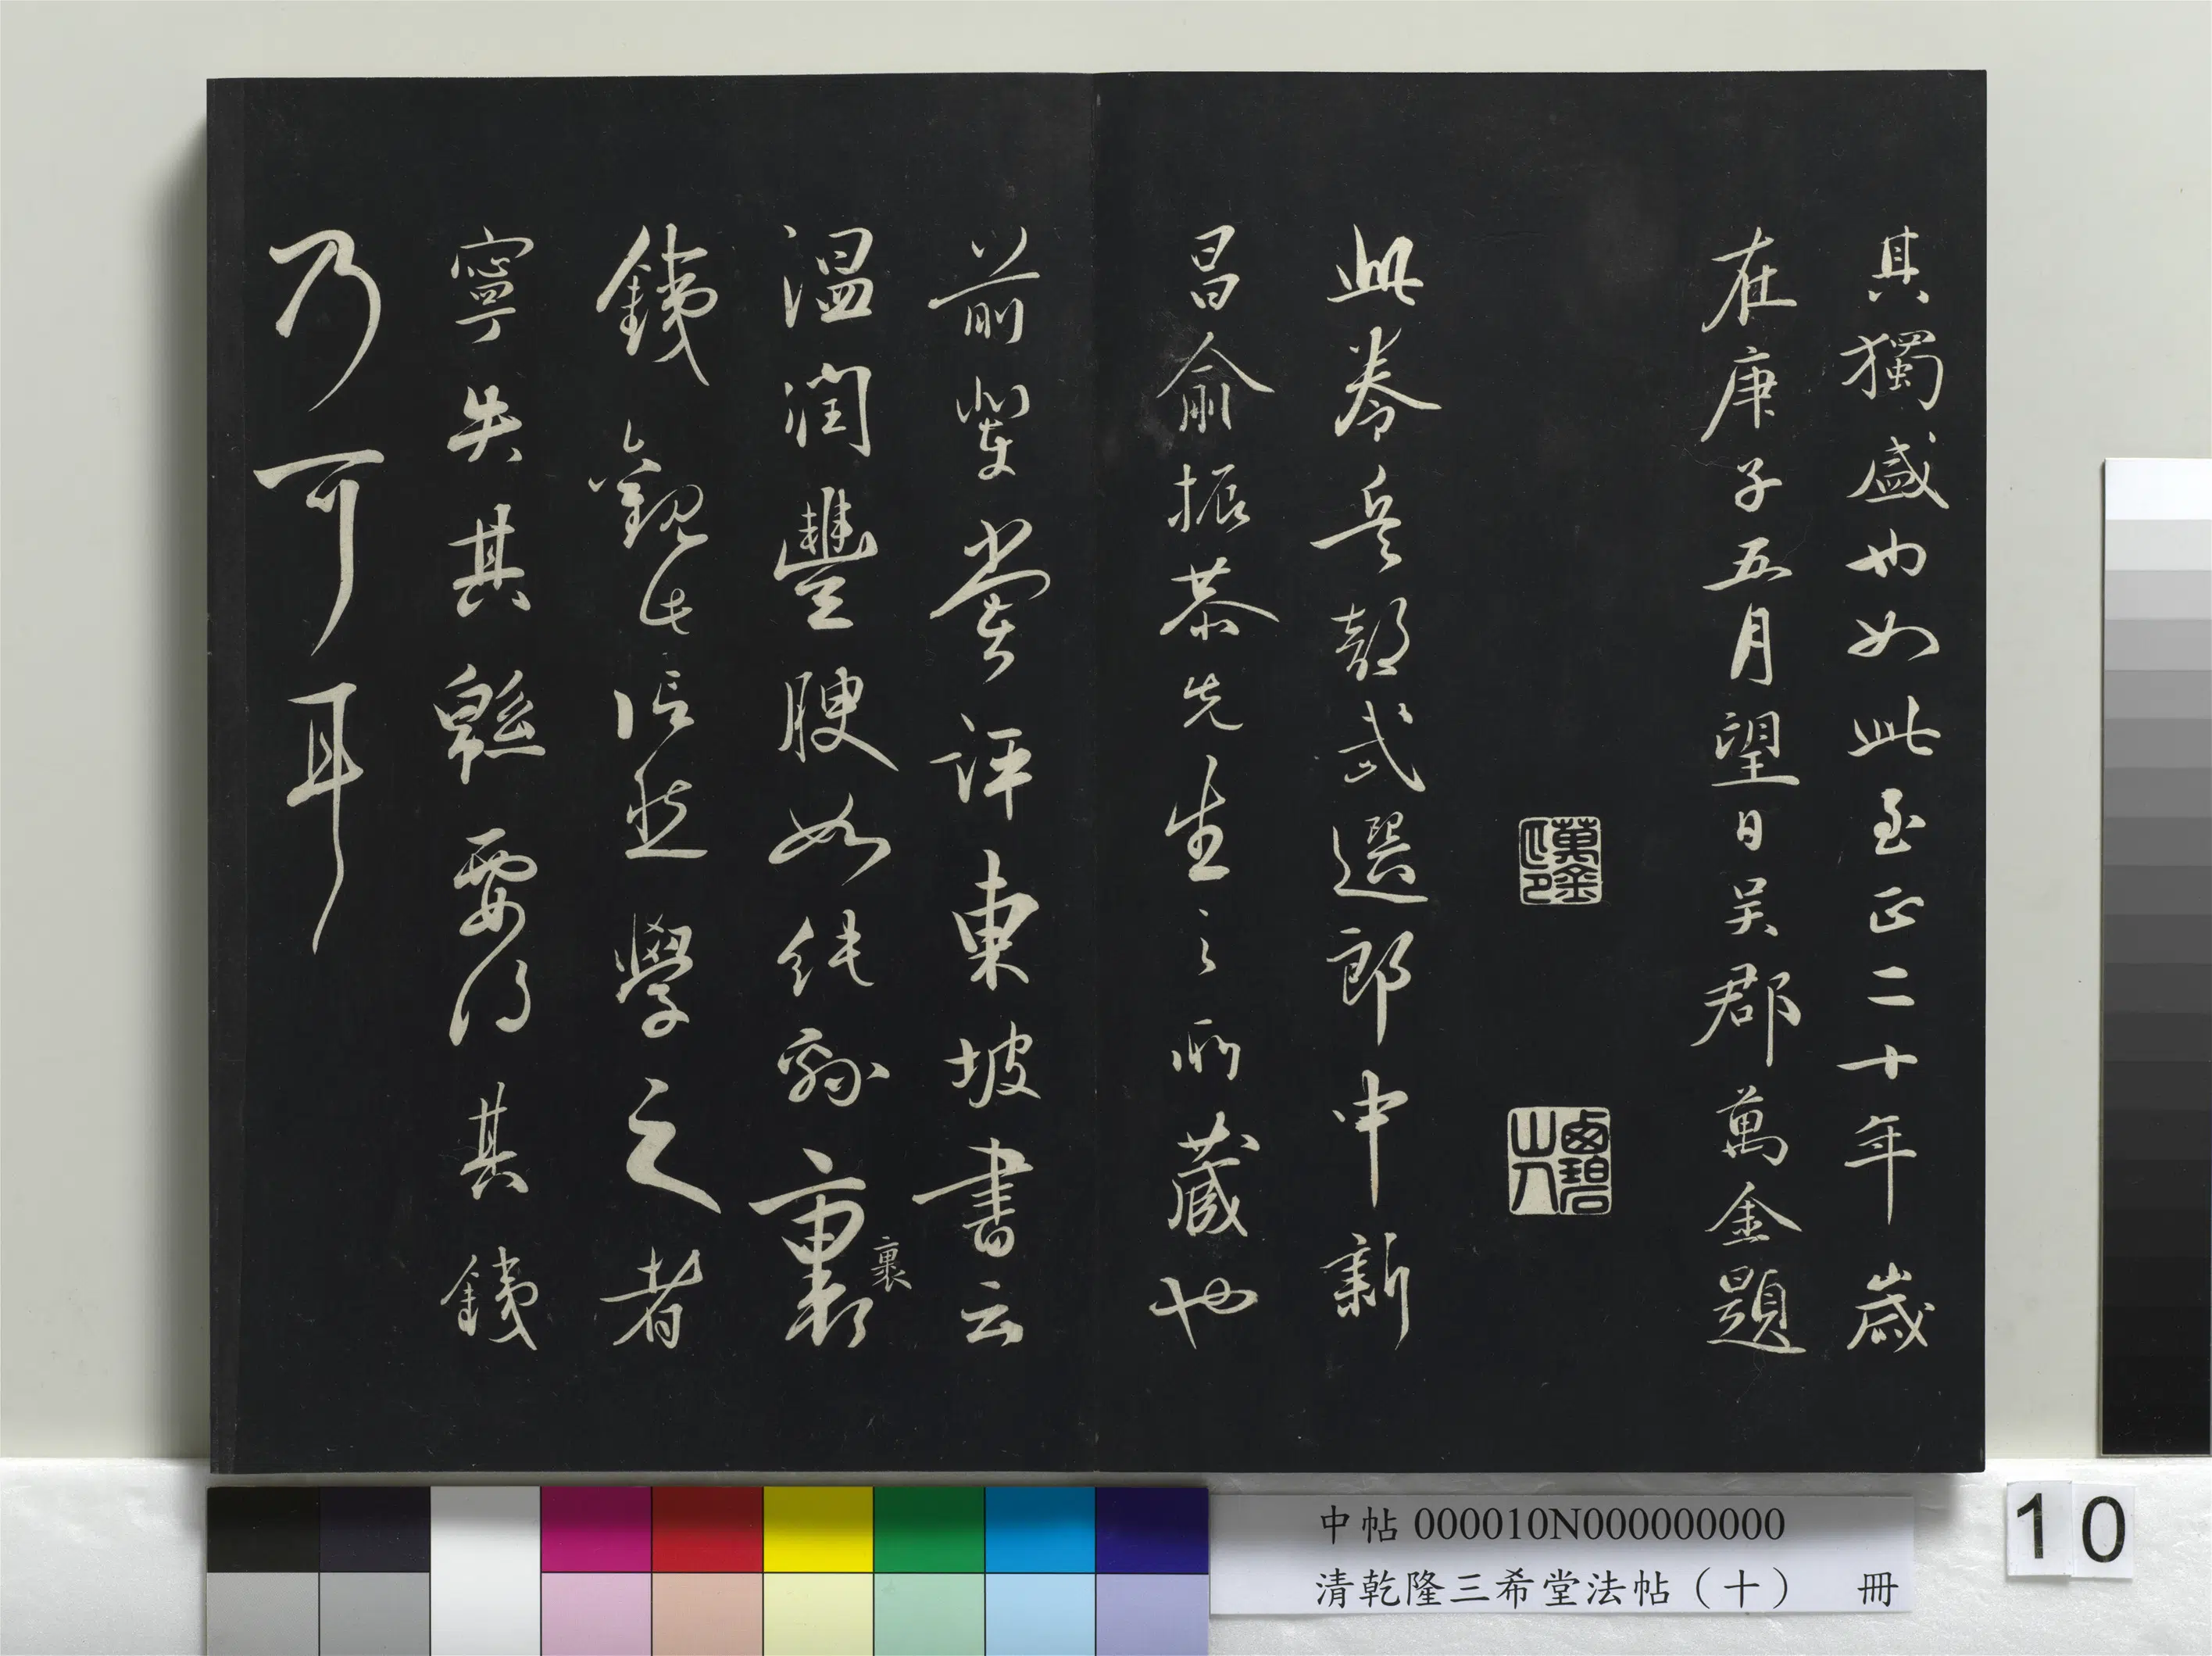 其獨盛也如此至正二十年歲
在庚子五月望日吳郡萬金題
萬金
印
山人
此卷兵部武選郎中新
昌俞振恭先生之所藏也
前輩嘗評東坡書云
溫潤豐腴如純綿裹
裹
鐵觀此信然學之者
寧失其緜要得其鐵
乃可耳
中帖 000010N000000000
清乾隆三希堂法帖（十） 冊
10